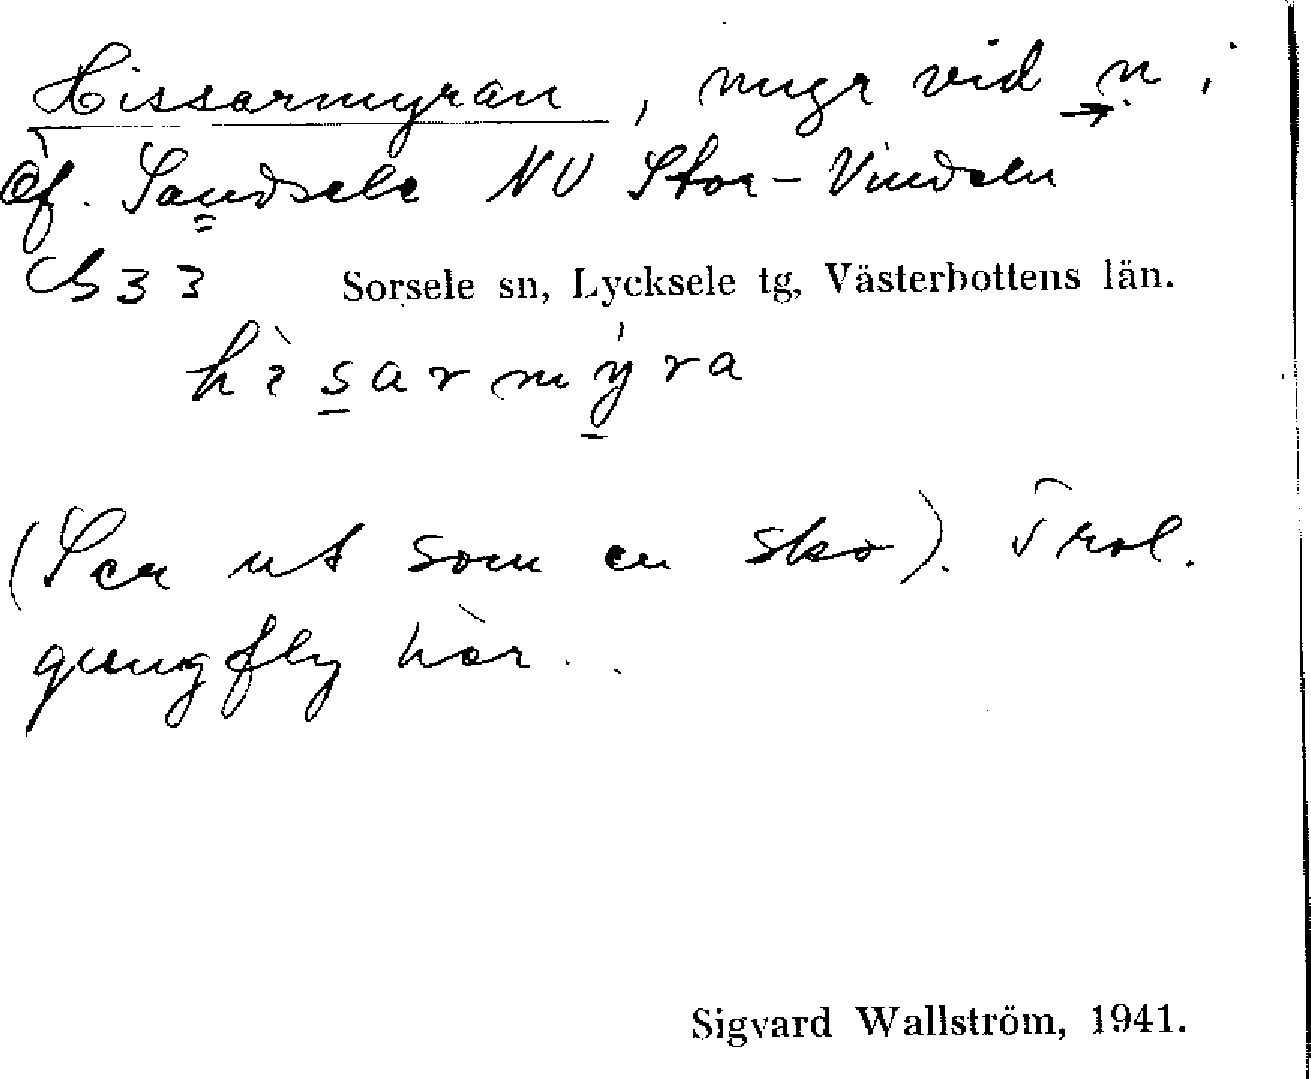 Hissarmyran, myr vid n i
öf. Sandsele NV Stor-Vindeln
33 Sorsele sn, Lycksele tg, Västerbottens län.
hìsarmy̍ra
(Ser ut som en sko). Trol.
gungfly här.
Sigvard Wallström, 1941.